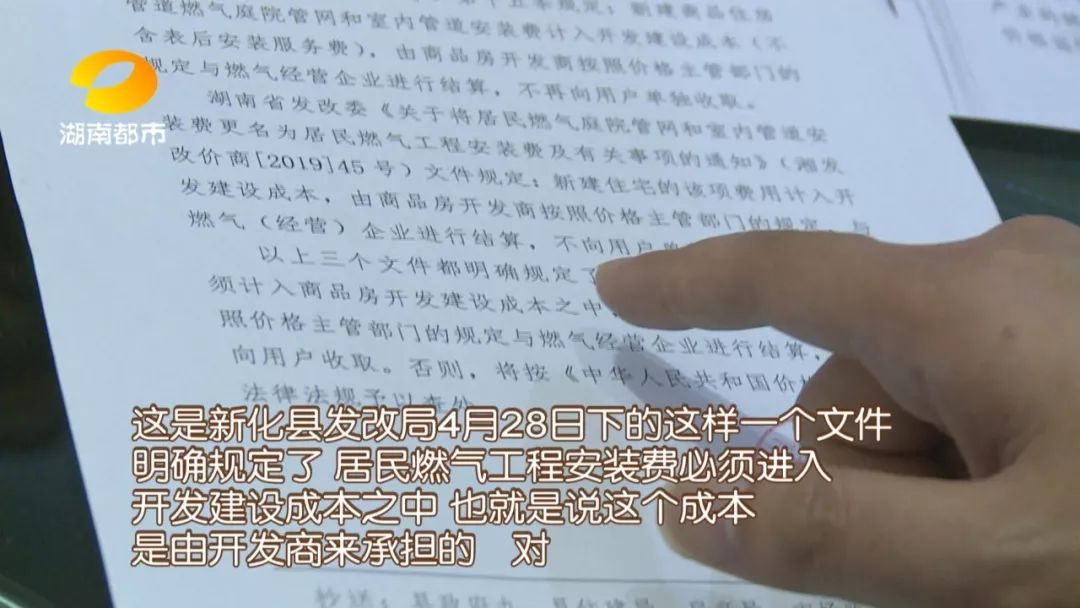 十五条规定：新建商品住房
管道燃气庭院管网和室内管道安装费计入开发建设成本（不
含表后安装服务费），由商品房开发商按照价格主管部门的
规定与燃气经营企业进行结算，不再向用户单独收取。
湖南省发改委《关于将居民燃气庭院管网和室内管道安
装费更名为居民燃气工程安装费及有关事项的通知》（湘发
改价商[2019]45号）文件规定：新建住宅的该项费用计入开
发建设成本，由商品房开发商按照价格主管部门的规定，与
燃气（经营）企业进行结算，不向用户单
以上三个文件都明确规定了
须计入商品房开发建设成本之中，
照价格主管部门的规定与燃气经营企业进行结算，
向用户收取。否则，将按《中华人民共和国价格
法律法规予以查处
湖南都市
这是新化县发改局4月28日下的这样一个文件
明确规定了 居民燃气工程安装费必须进入
开发建设成本之中 也就是说这个成本
是由开发商来承担的 对
抄送：县政府办，县住建局，